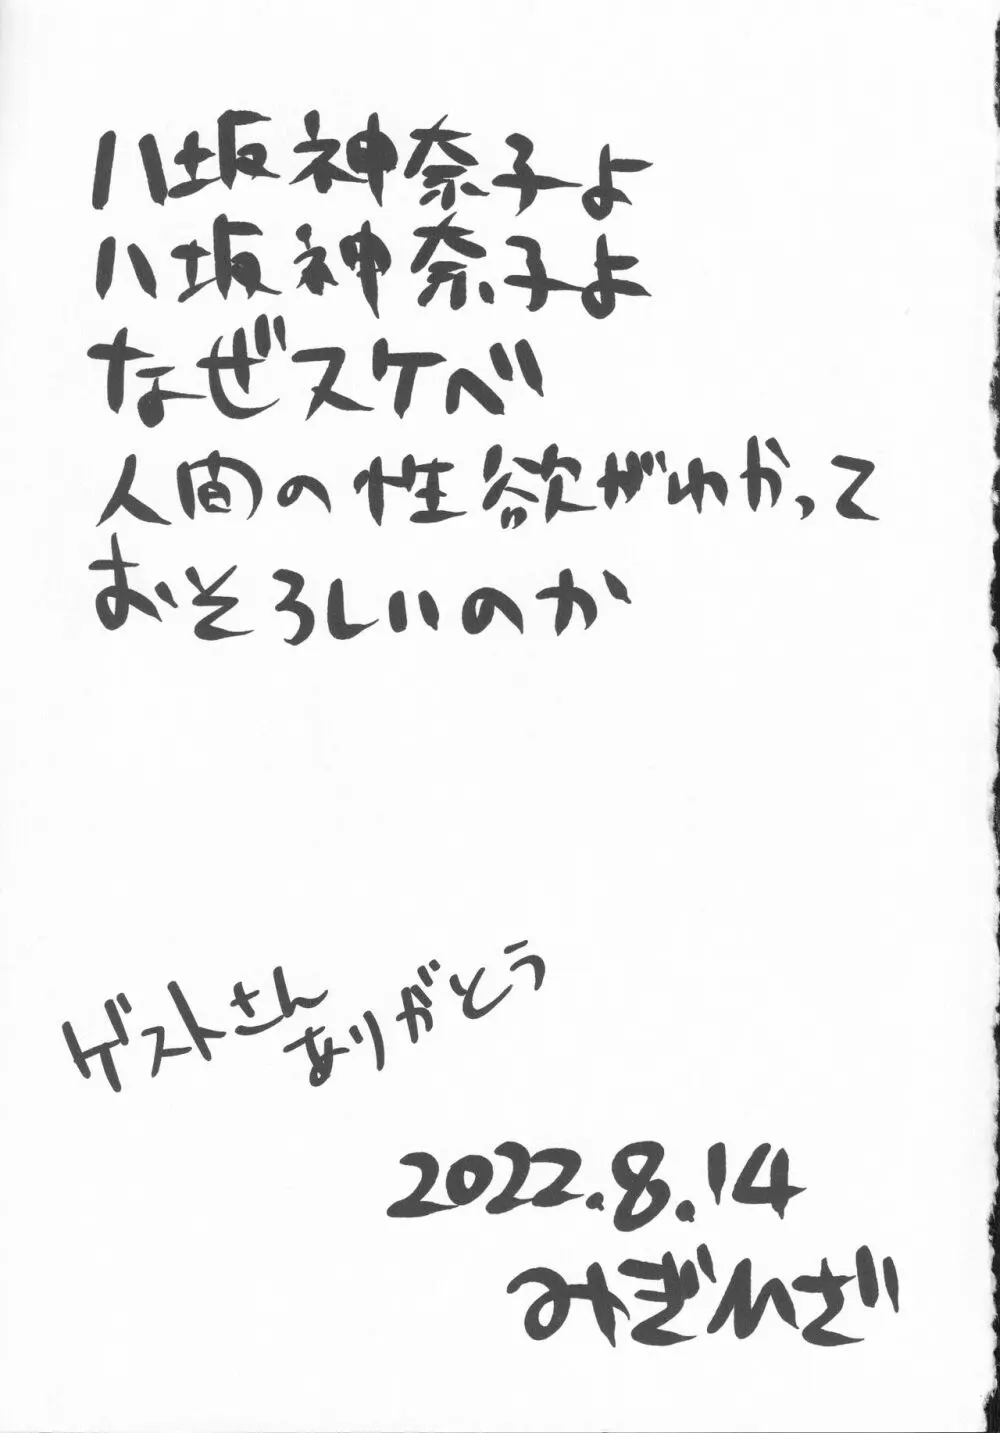 八坂神奈子よ
八坂神奈子よ
なぜスケベ
人間の性欲がわかって
おそろしいのか
ゲストさん
ありがとう
2022.8.14
みぎひざ